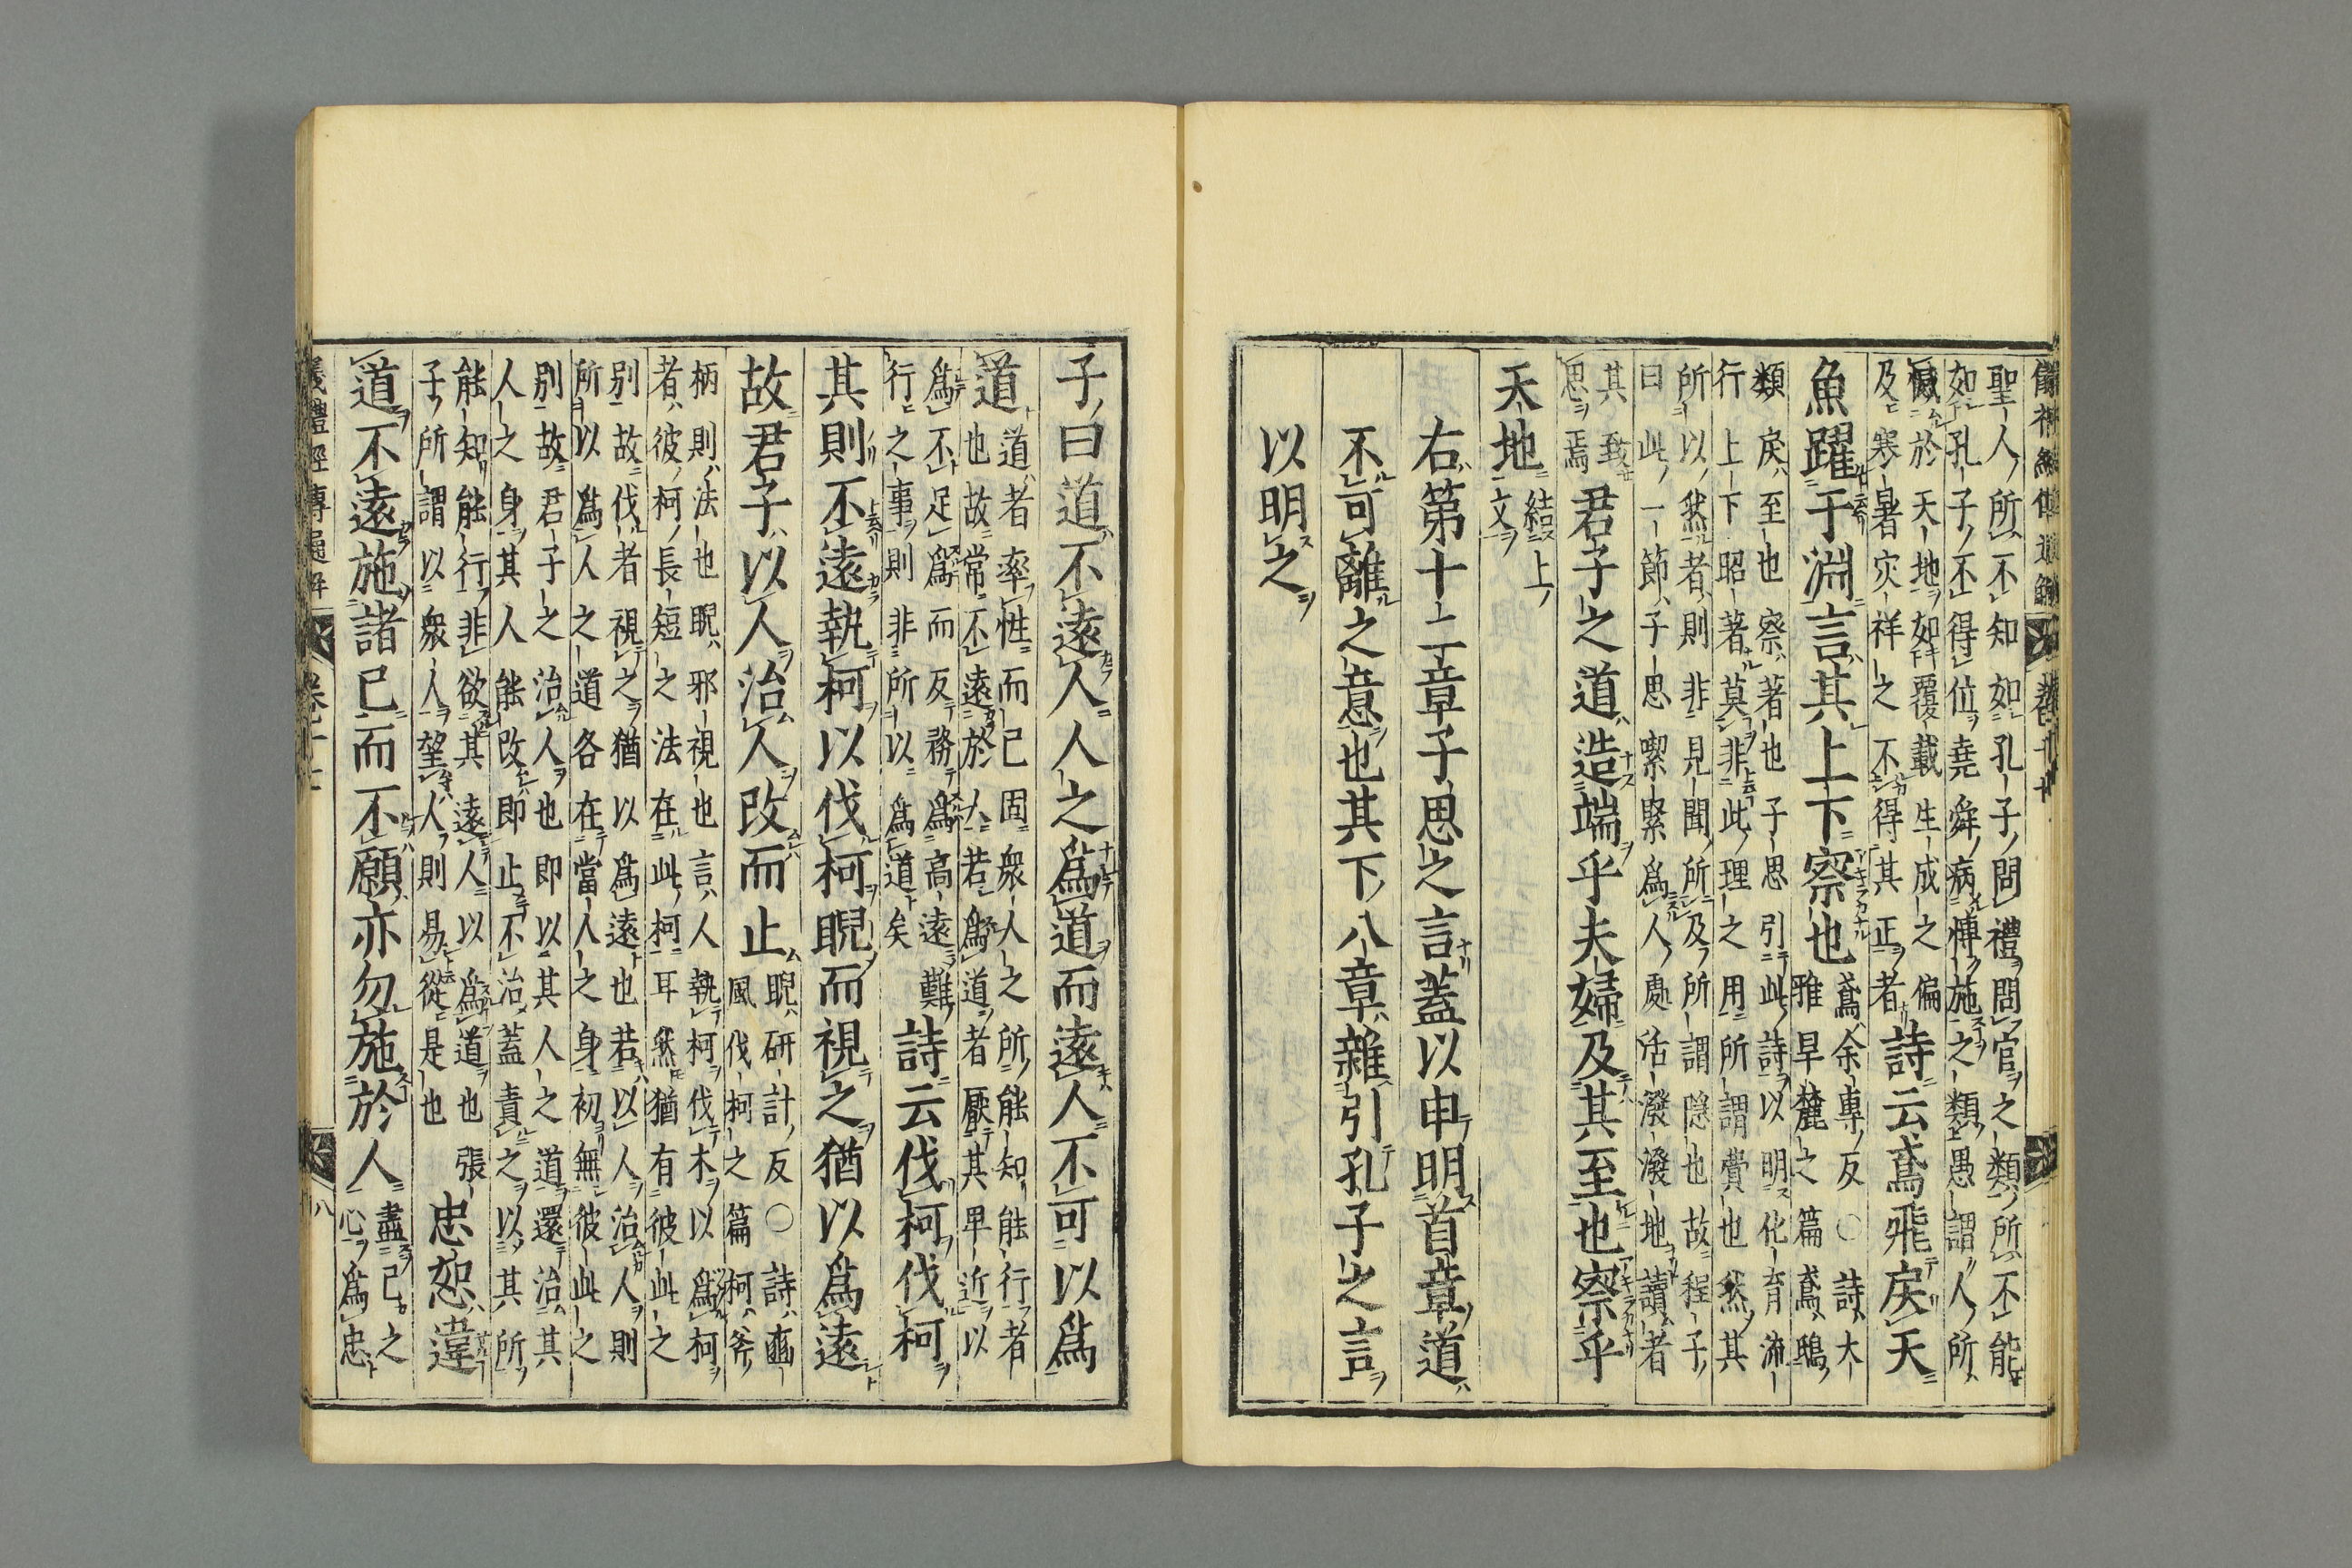 聖人所不知如孔子問禮問官之類所不能
如孔子不得位堯舜病博施之類愚謂人所
憾於天地如覆載生成之偏
及寒暑災祥之不得其正者
詩云鳶飛戾天
魚躍于淵言其上下察也
鳶余專反○詩大
雅旱麓之篇鳶鴟
類戾至也察著也子思引此詩以明化育流
行上下昭著莫非此理之用所謂費也然其
所以然者則非見聞所及所謂隱也故程子
曰此一節子思喫緊爲人處活潑潑地讀者
其致
思焉
君子之道造端乎夫婦及其至也察乎
天地
結上
文
右第十二章子思之言蓋以申明首章道
不可離之意也其下八章雜引孔子之言
以明之
子曰道不遠人人之爲道而遠人不可以爲
道
道者率性而已固衆人之所能知能行者
也故常不遠於人若爲道者厭其卑近以
爲不足爲而反務爲高遠難
行之事則非所以爲道矣
詩云伐柯伐柯
其則不遠執柯以伐柯睨而視之猶以爲遠
故君子以人治人改而止
睨研計反○詩豳
風伐柯之篇柯斧
柄則法也睨邪視也言人執柯伐木以爲柯
者彼柯長短之法在此柯耳然猶有彼此之
別故伐者視之猶以爲遠也若以人治人則
所以爲人之道各在當人之身初無彼此之
別故君子之治人也即以其人之道還治其
人之身其人能改即止不治蓋責之以其所
能知能行非欲其遠人以爲道也張
子所謂以衆人望人則易從是也
忠恕違
道不遠施諸己而不願亦勿施於人
盡己之
心爲忠
儀禮經傳通解
卷十七
八